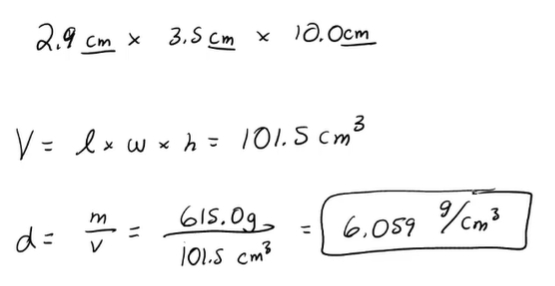 2.9 cm × 3.5 cm × 10.0cm
V = l × w × h = 101.5 cm³
d = m/v = 615.0g/101.5 cm³ = 6.059 g/cm³